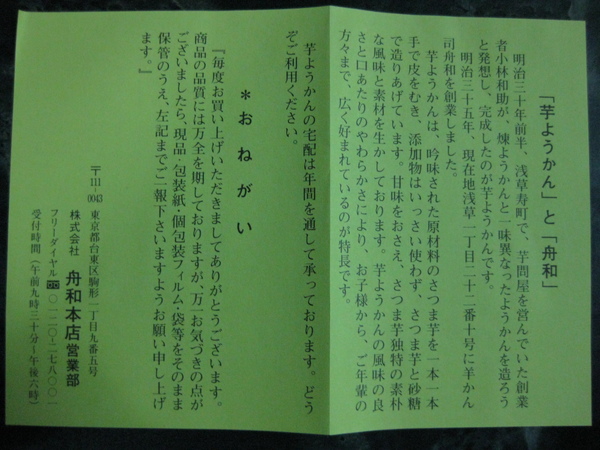 「芋ようかん」と「舟和」
明治三十年前半、浅草寿町で、芋問屋を営んでいた創業
者小林和助が、煉ようかんと一味異なったようかんを造ろう
と発想し、完成したのが芋ようかんです。
明治三十五年、現在地浅草一丁目二十二番十号に羊かん
司舟和を創業しました。
芋ようかんは、吟味された原材料のさつま芋を一本一本
手で皮をむき、添加物はいっさい使わず、さつま芋と砂糖
で造りあげています。甘味をおさえ、さつま芋独特の素朴
な風味と素材を生かしております。芋ようかんの風味の良
さと口あたりのやわらかさにより、お子様から、ご年輩の
方々まで、広く好まれているのが特長です。
芋ようかんの宅配は年間を通して承っております。どう
ぞご利用ください。
＊おねがい
『毎度お買い上げいただきましてありがとうございます。
商品の品質には万全を期しておりますが、万一お気づきの点が
ございましたら、現品・包装紙・個包装フィルム・袋等をそのまま
保管のうえ、左記までご一報下さいますようお願い申し上げ
ます。』
〒111-0043 東京都台東区駒形一丁目九番五号
株式会社 舟和本店営業部
フリーダイヤル 〇一二〇-二七八〇〇一
受付時間(午前九時三十分〜午後六時)